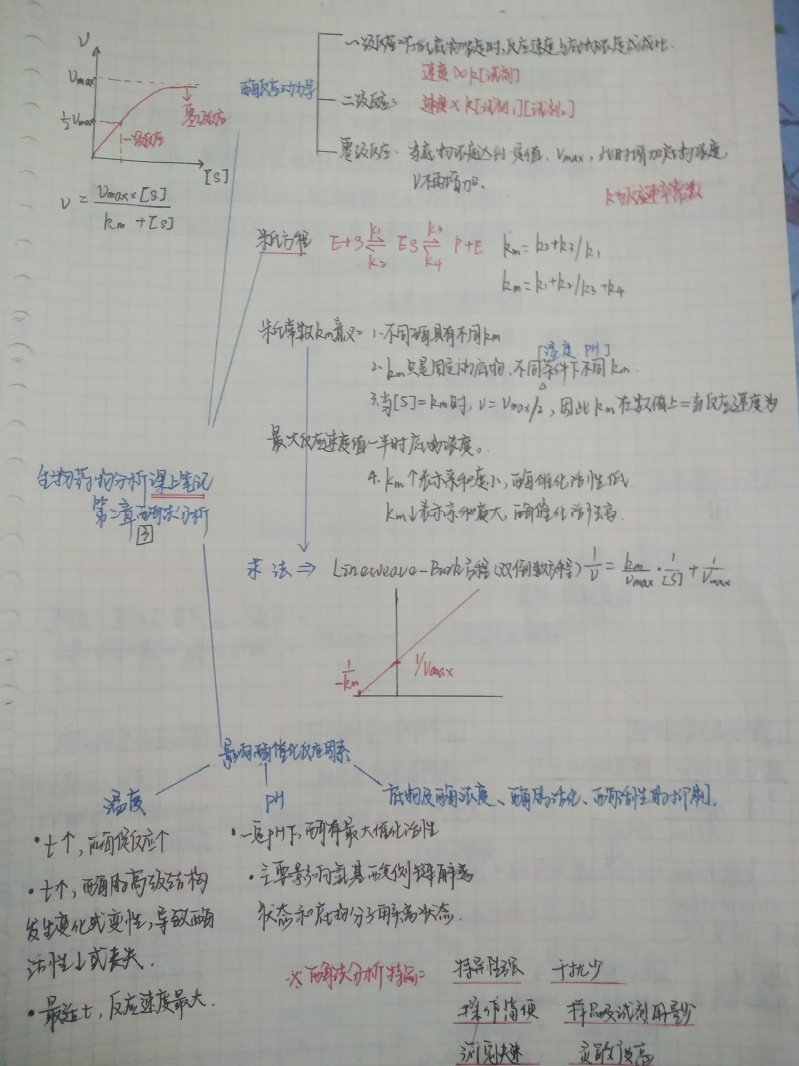 V
Vmax
½Vmax
零级反应
一级反应
[S]
V = Vmax×[S] / km+[S]
酶反应动力学
一级反应:在低底物浓度时,反应速度与底物浓度成正比.
速度∝k[试剂]
二级反应: 速度∝k[试剂₁][试剂₂]
零级反应: 当底物浓度达到一定值, Vmax, 此时增加底物浓度,
V不再增加.
k为反应速率常数
米氏方程 E+S ⇌ ES ⇌ P+E km=k2+k3/k1
k1 k2 k3 k4
km=k1+k2/k3+k4
米氏常数km意义: 1.不同酶具有不同km
[温度. PH]
2. km只是固定的底物、不同条件下不同km.
3.当[S]=km时, V=Vmax/2, 因此km在数值上=当反应速度为
最大反应速度值一半时底物浓度。
4. km↑表示亲和度小,酶催化活性低.
km↓表示亲和度大,酶催化活性高.
生物药物分析课上笔记
第二章酶法分析
3
求法⇒ Lineweave-Burk方程(双倒数方程) 1/V = km/Vmax · 1/[S] + 1/Vmax
1/-km
1/Vmax
影响酶催化反应因素
温度
pH
底物及酶浓度、酶的活化、酶活性的抑制.
·t↑,酶促反应↑
·t↑,酶的高级结构
发生变化或变性,导致酶
活性↓或丧失.
·最适t,反应速度最大.
·一定pH下,酶有最大催化活性
·主要影响氨基酸侧链解离
状态和底物分子解离状态.
※酶法分析特点: 特异性强 干扰少
操作简便 样品及试剂用量少
测定快速 灵敏度高